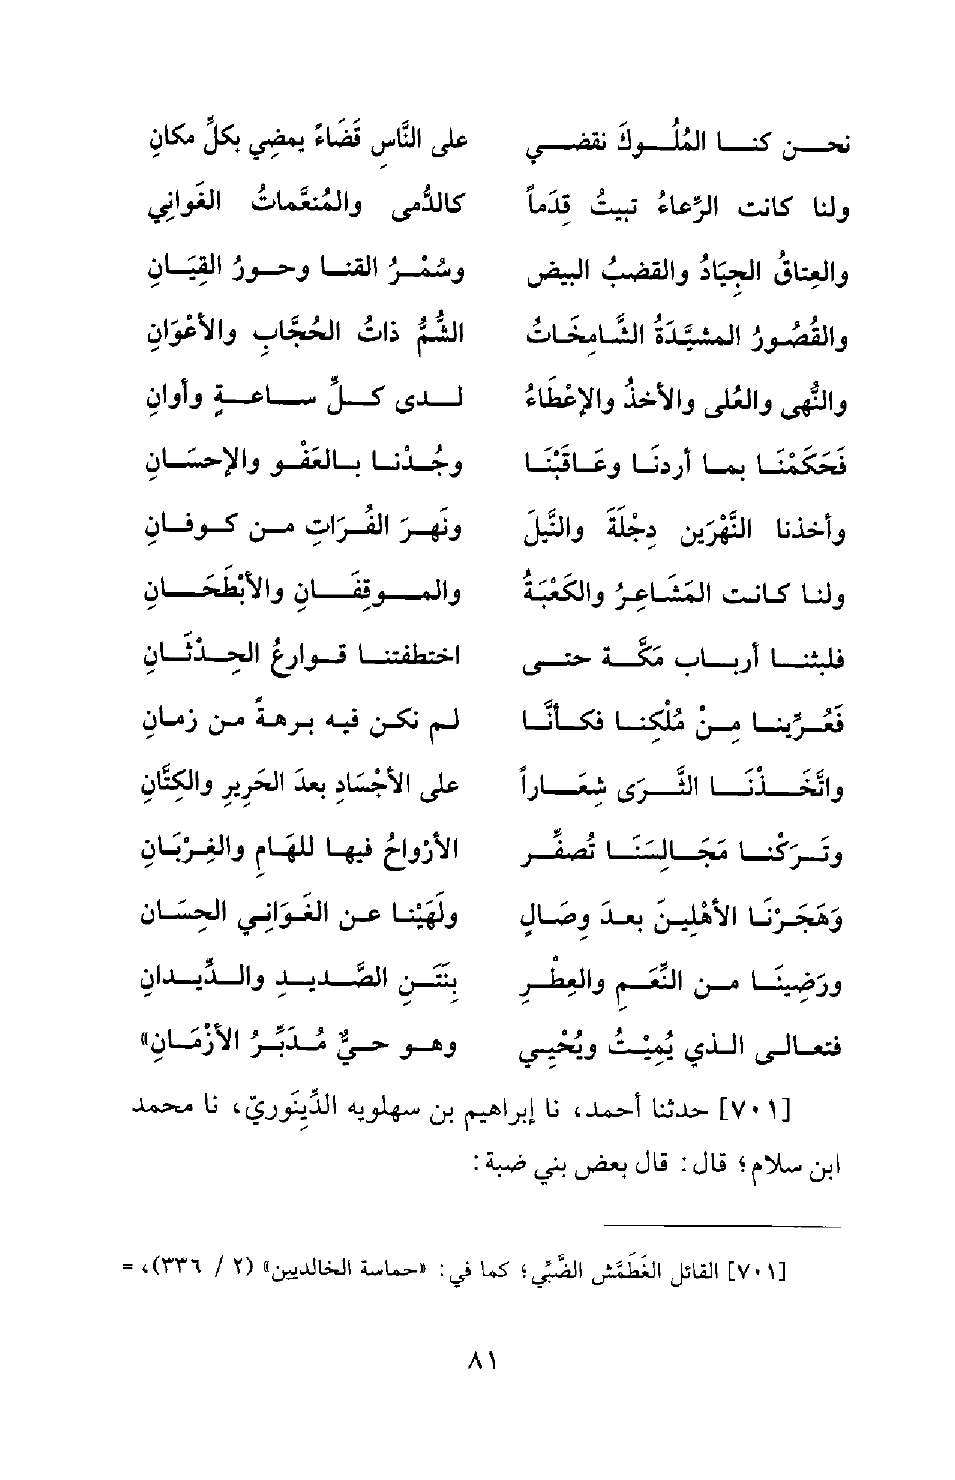 نحن كنا المُلُوكَ نقضي على النَّاسِ قَضَاءً يمضِي بكلِّ مكانِ
ولنا كانت الرِّعاءُ تبيتُ قِدَماً كالدُّمى والمُنعَّماتُ الغَوانِي
والعِتاقُ الجِيَادُ والقضبُ البيض وسُمْرُ القنا وحورُ القِيَانِ
والقُصُورُ المشيَّدَةُ الشَّامِخَاتُ الشُّمُّ ذاتُ الحُجَّابِ والأَعْوَانِ
والنُّهى والعُلى والأخذُ والإعْطَاءُ لدى كلِّ ساعةٍ وأوانِ
فَحَكَمْنَا بما أردنَا وعَاقَبْنَا وجُدْنا بالعَفْوِ والإحسَانِ
وأخذنا النَّهْرَين دِجْلَةَ والنِّيلَ ونَهرَ الفُرَاتِ من كوفانِ
ولنا كانت المَشَاعِرُ والكَعْبَةُ والموقِفَانِ والأبْطَحَانِ
فلبثنا أرباب مَكَّة حتى اختطفتنا قوارعُ الحِدْثَانِ
فَعُرِّينا مِنْ مُلْكِنا فكأنَّا لم نكن فيه برهةً من زمانِ
واتَّخَذْنَا الثَّرَى شِعَاراً على الأجْسَادِ بعدَ الحَرِيرِ والكِتَّانِ
وتَرَكْنا مَجَالِسَنَا تُصفِّر الأرْواحُ فيها للهَامِ والغِرْبَانِ
وَهَجَرْنَا الأَهْلِينَ بعدَ وِصَالٍ ولَهَيْنا عن الغَوَانِي الحِسَانِ
ورَضِينَا من النِّعَمِ والعِطْرِ بِنَتَنِ الصَّديدِ والدِّيدانِ
فتعالى الذي يُمِيْتُ ويُحْيِي وهو حيٌّ مُدَبِّرُ الأزْمَانِ»
[٧٠١] حدثنا أحمد، نا إبراهيم بن سهلويه الدِّينَوريّ، نا محمد
ابن سلام؛ قال: قال بعض بني ضبة:
[٧٠١] القائل الغَطَمَّش الضَّبِّي؛ كما في: «حماسة الخالديين» (٢ / ٣٣٦)، =
٨١